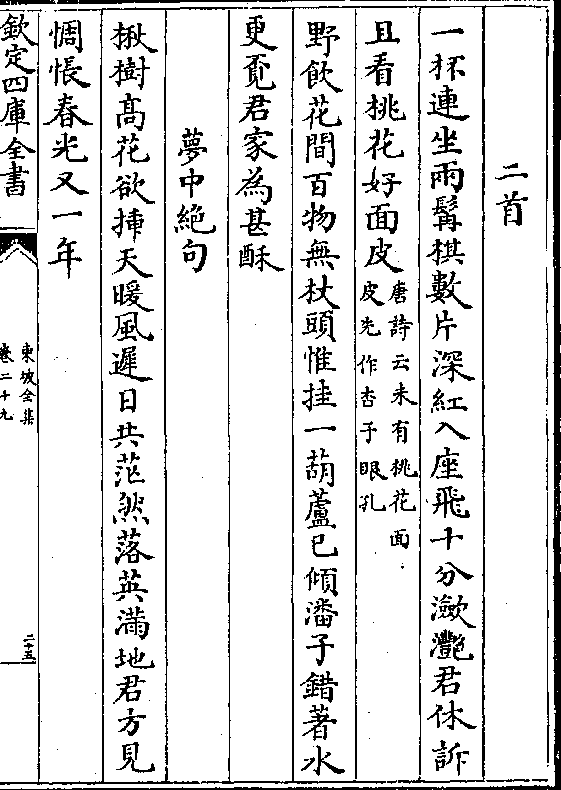 二首
一杯連坐兩髯棋數片深紅入座飛十分瀲灧君休訴
且看桃花好面皮唐詩云未有桃花面
皮先作杏子眼孔
野飲花間百物無杖頭惟挂一葫蘆已傾潘子錯著水
更覔君家為甚酥
夢中絕句
楸樹髙花欲揷天暖風遲日共茫然落英滿地君方見
惆悵春光又一年
欽定四庫全書
東坡全集
卷二十九
二十五